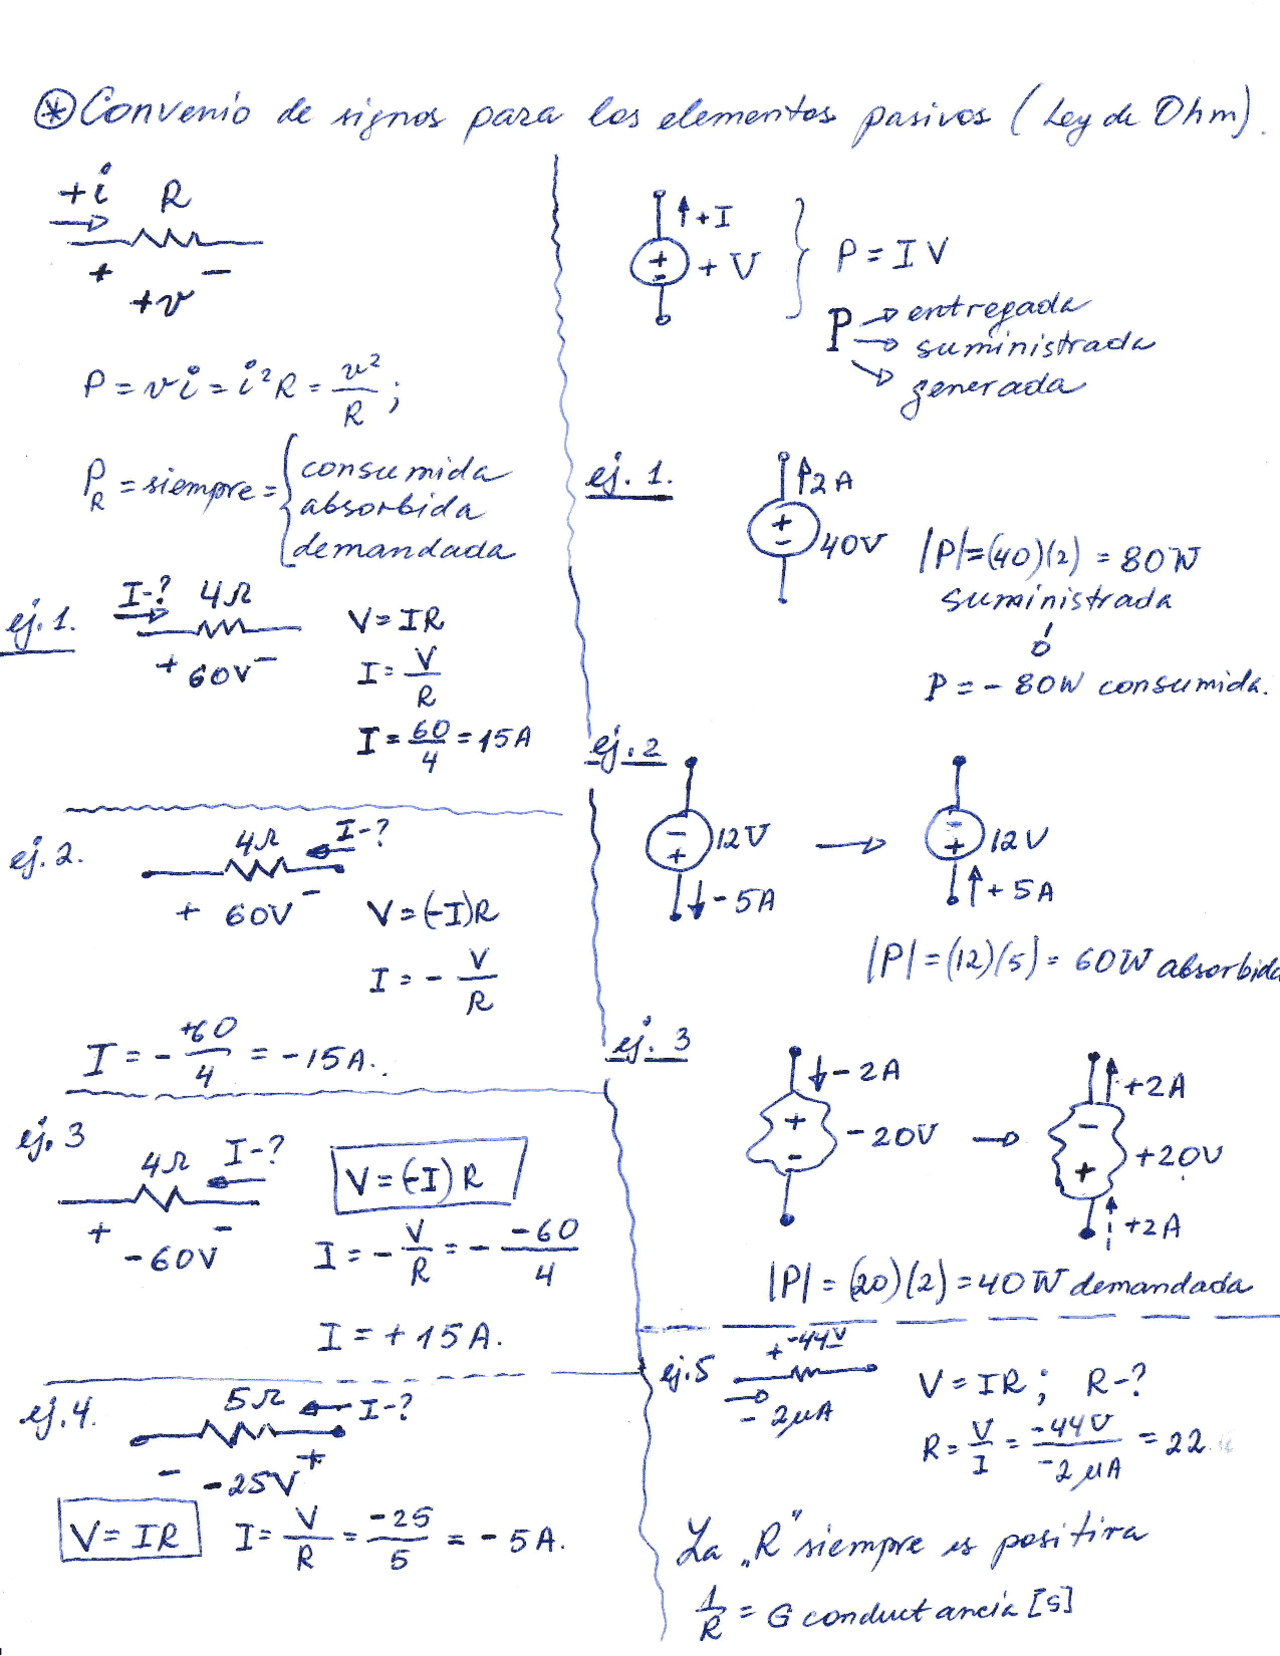 ⊛ Convenio de signos para los elementos pasivos (Ley de Ohm).
+i R
+ −
+v
P = vi = i²R = v²/R ;
P_R = siempre = { consumida
absorbida
demandada
ej. 1.
I-? 4Ω
+ 60V −
V = IR
I = V/R
I = 60/4 = 15A
ej. 2.
4Ω I-?
+ 60V −
V = (-I)R
I = - V/R
I = - +60/4 = -15A.
ej. 3
4Ω I-?
+ -60V −
V = (-I) R
I = - V/R = - -60/4
I = + 15A.
ej. 4.
5Ω I-?
− -25V +
V = IR
I = V/R = -25/5 = - 5A.
+I
+ − + V } P = I V
P → entregada
→ suministrada
→ generada
ej. 1.
2A
+ − 40V
|P| = (40)(2) = 80W
suministrada
ó
P = - 80W consumida.
ej. 2
− + 12V → − + 12V
- 5A + 5A
|P| = (12)(5) = 60W absorbida
ej. 3
- 2A +2A
+ − - 20V → − + +20V
+2A
|P| = (20)(2) = 40W demandada
ej. 5
+ -44V
- 2μA
V = IR ; R-?
R = V/I = -44V/-2μA = 22
La „R" siempre es positiva
1/R = G conductancia [S]